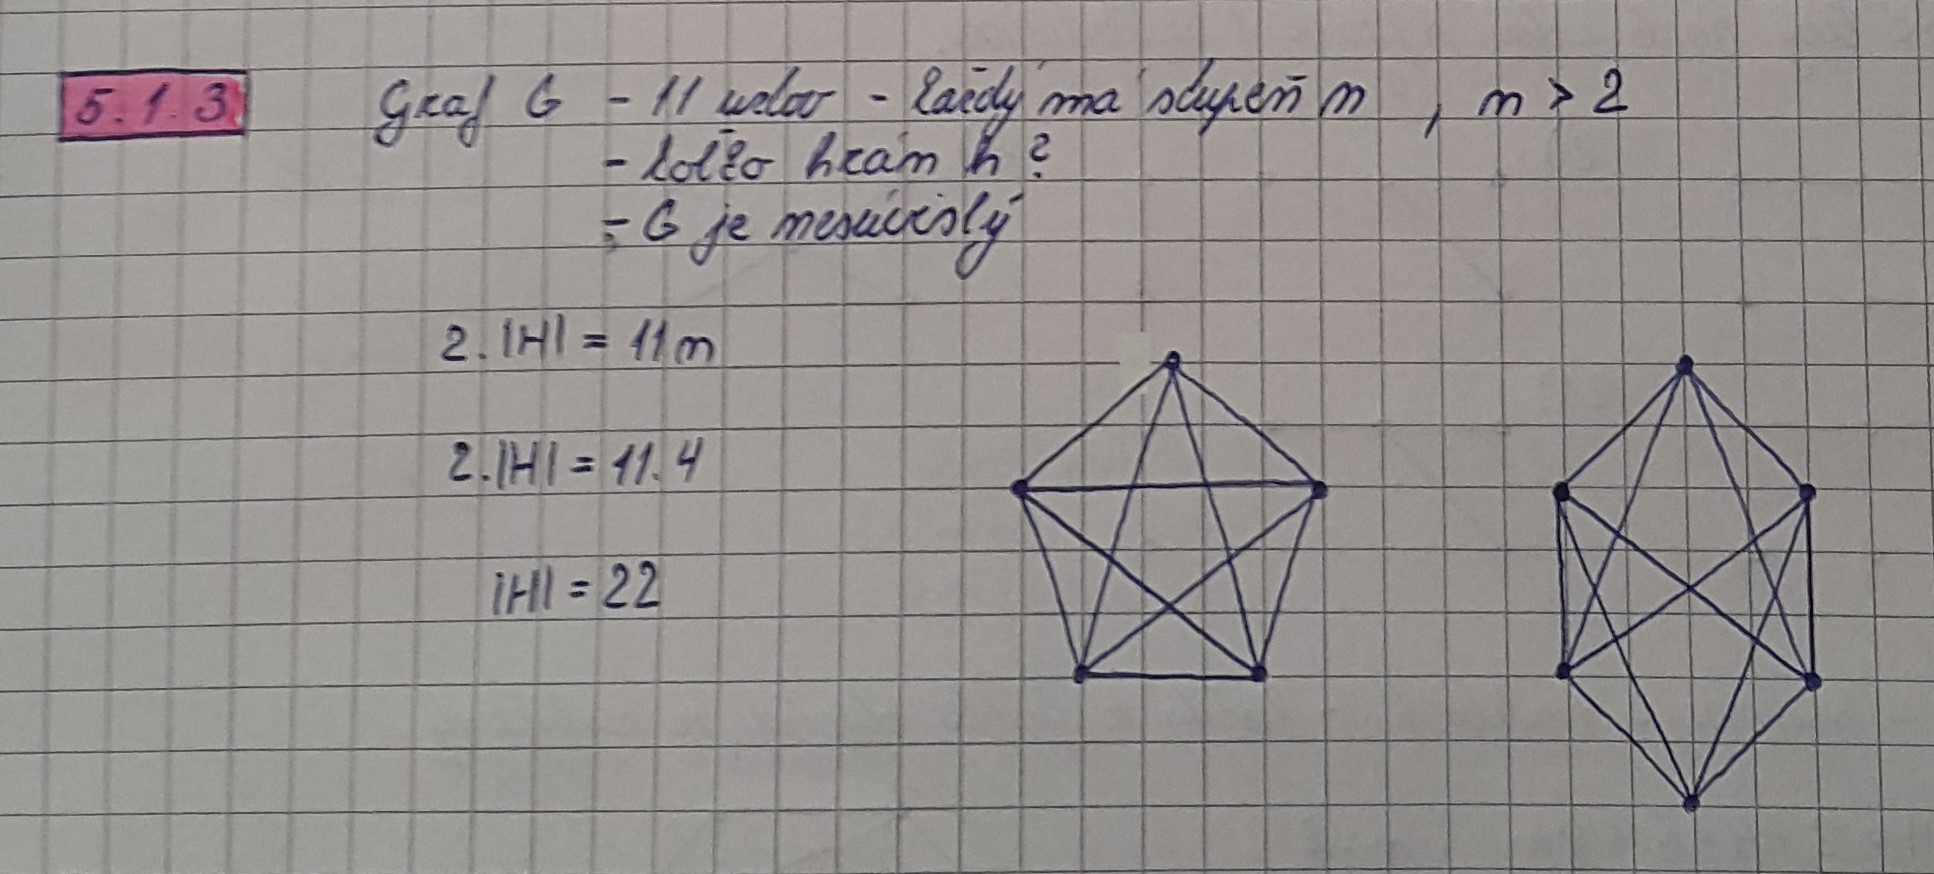 5.1.3 Graf G - 11 uzlov - každý má stupeň n , n > 2
- koľko hrán h ?
- G je nesúvislý
2. |H| = 11n
2. |H| = 11.4
|H| = 22